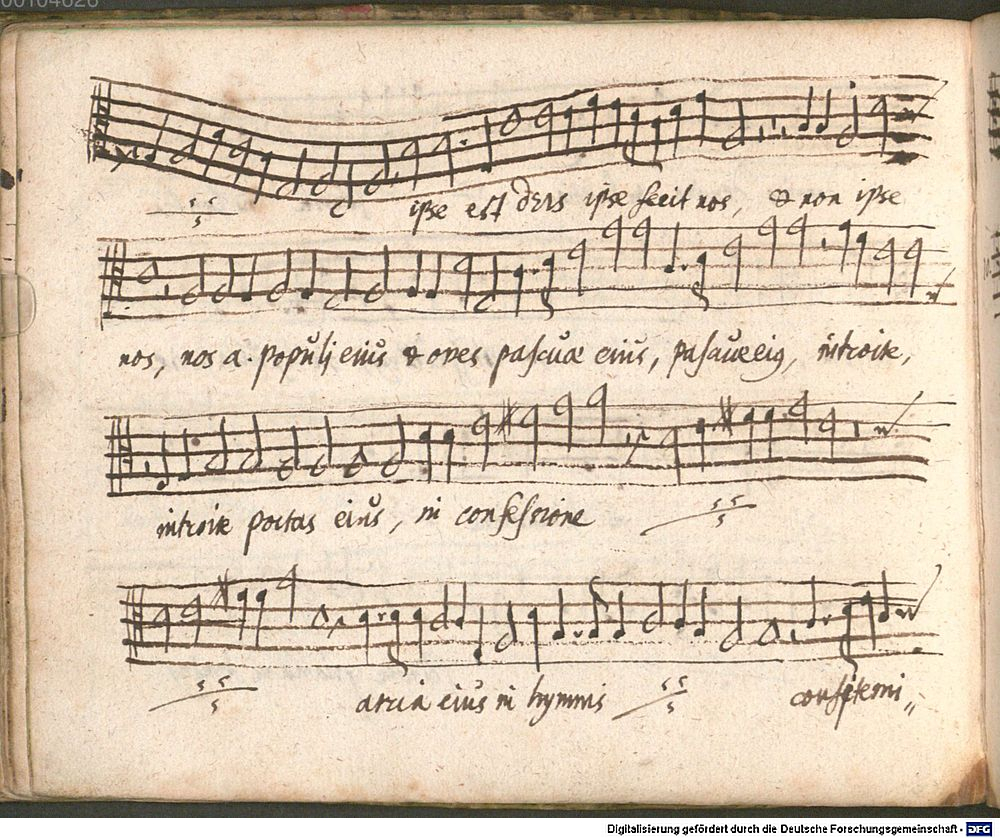 00104626
ipse est deus ipse fecit nos, & non ipse
nos, nos a. populj eius & oves pascuæ eius, pascuæ eiq, introite,
introite portas eius, in confessione
atria eius in hymnis
confitemi
Digitalisierung gefördert durch die Deutsche Forschungsgemeinschaft - DFG